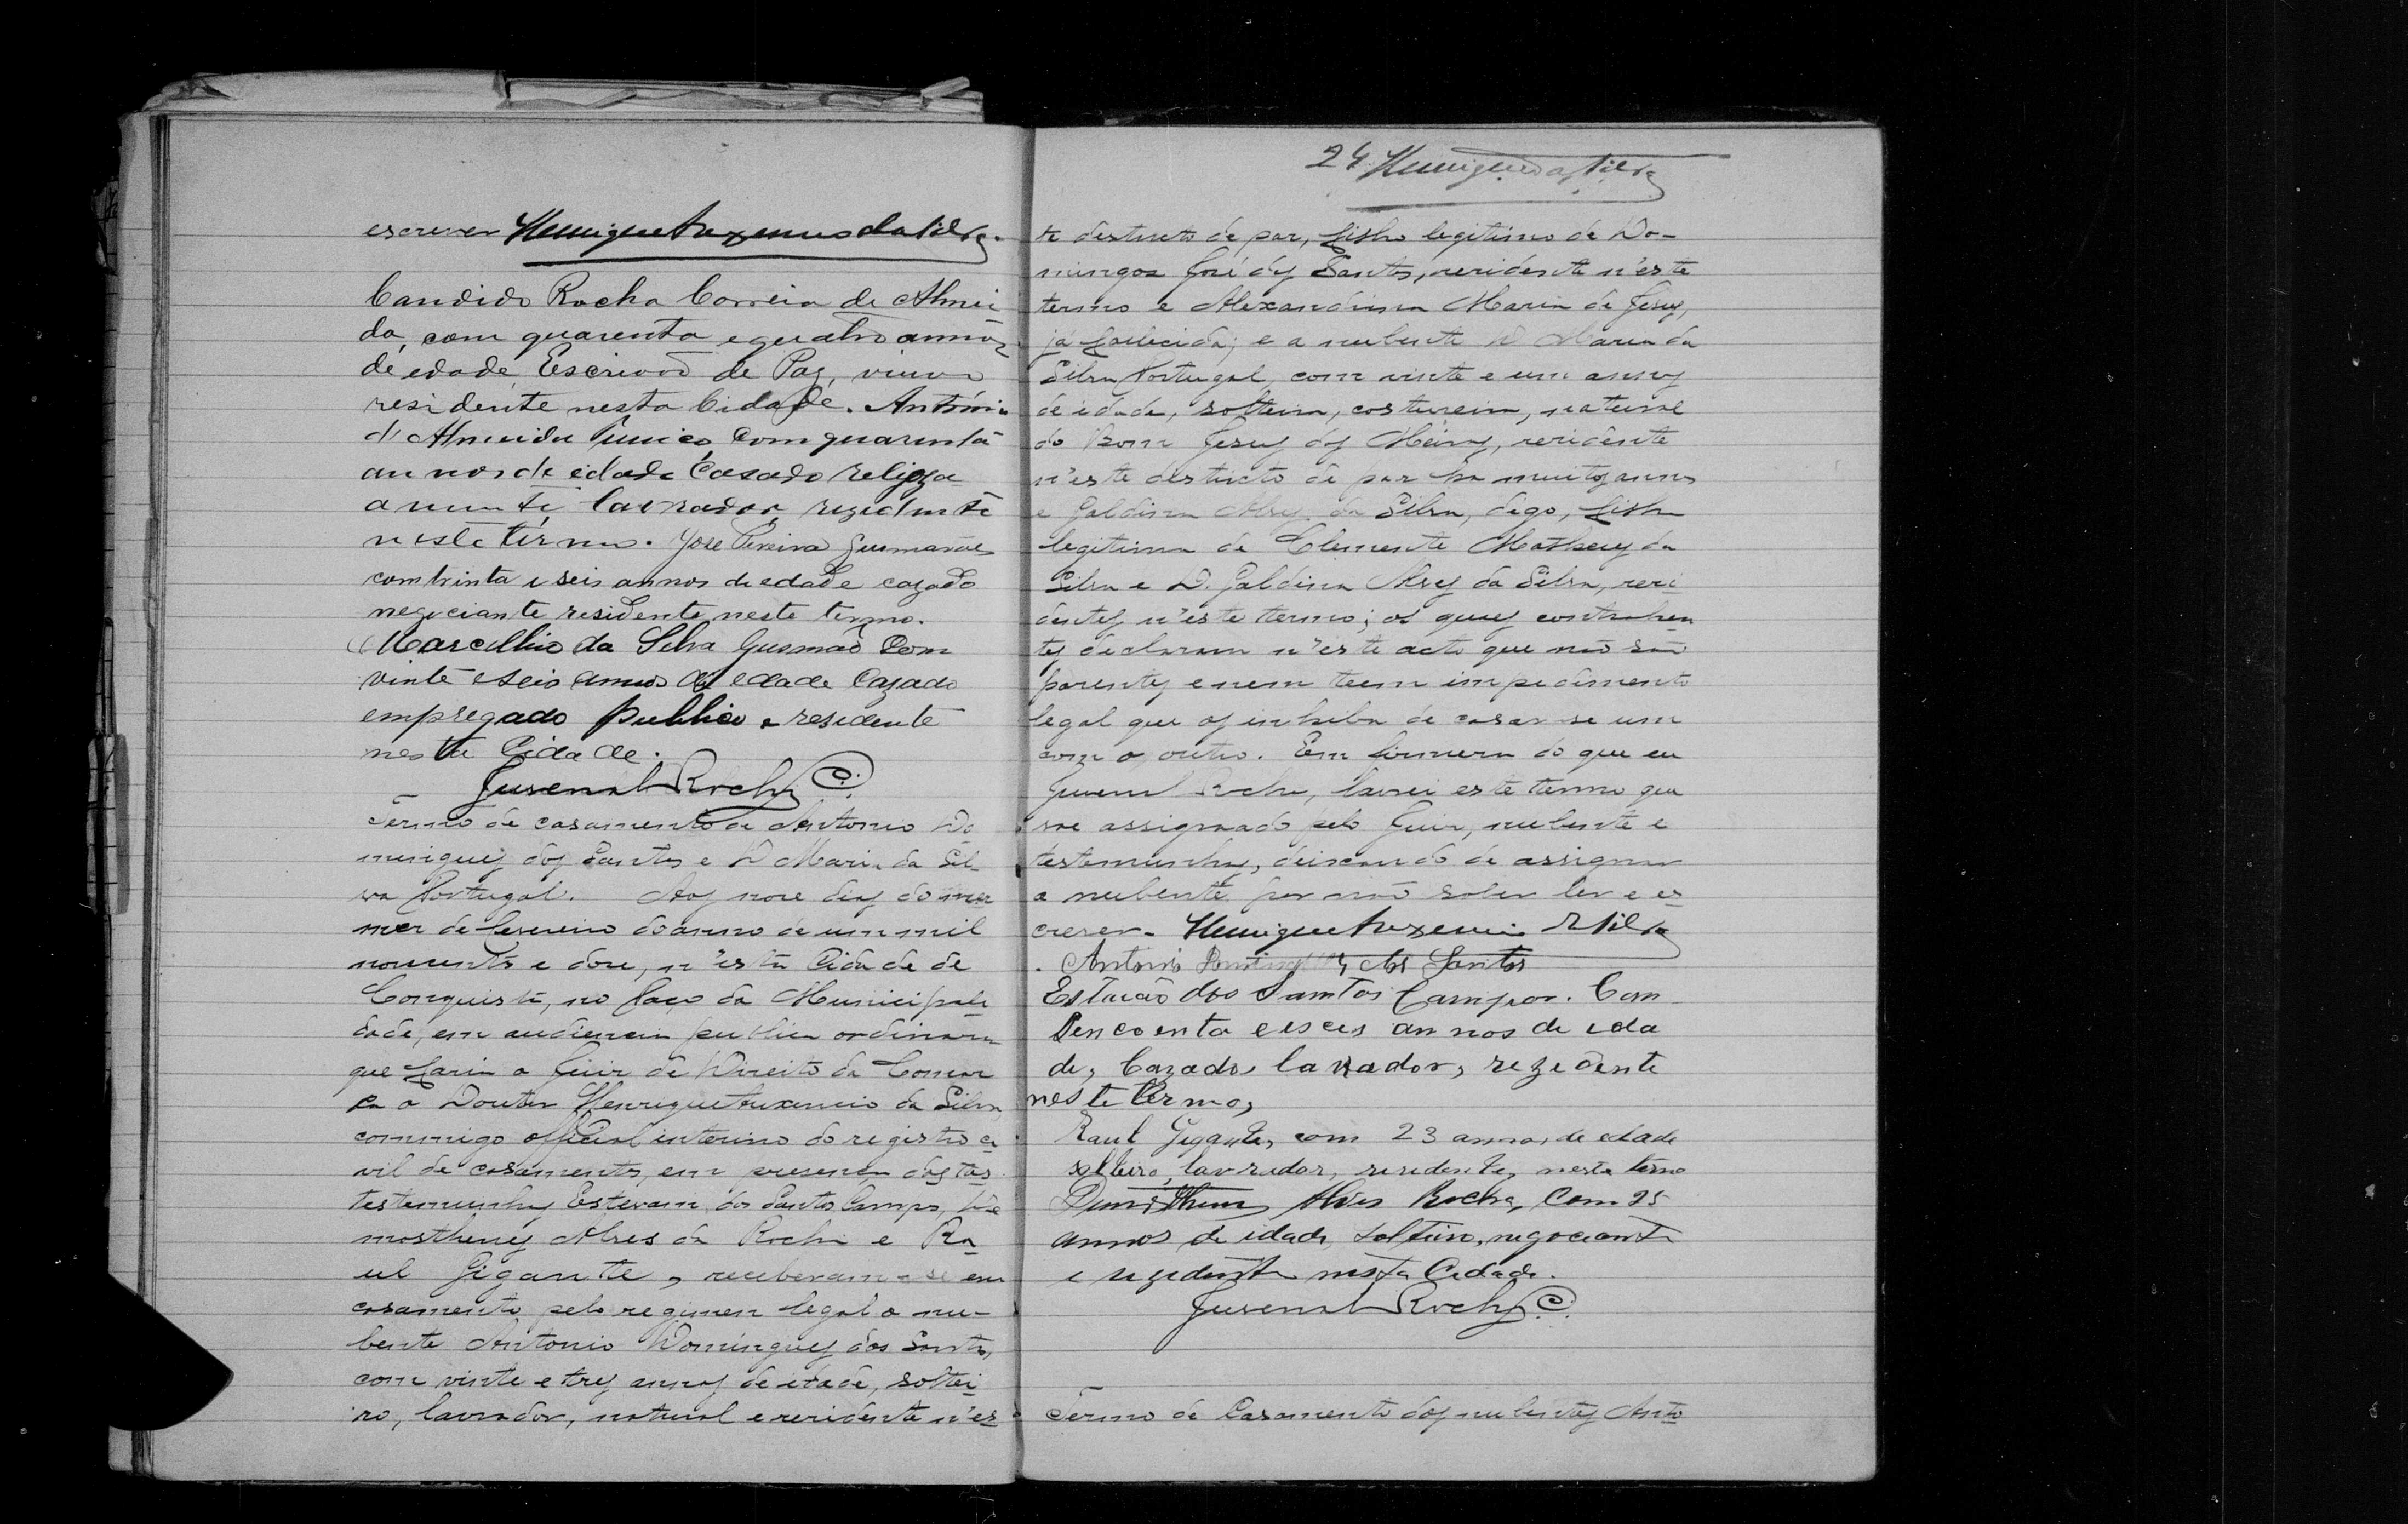 escrever Henrique Auxencio da Silva.
Candido Rocha Correia de Almei
da, com quarenta e quatro annos
de edade, Escrivão de Paz, viuvo
residente nesta Cidade. Antonio
d'Almeida com quarenta
annos de edade Casado religza
amente lavrador rezidente
neste térmo. José Pereira Gusmarães
com trinta e seis annos de edade cazado
negociante residente neste termo.
Marcellino da Silva Gusmão Com
vinte e seis annos de edade Cazado
empregado publico e residente
nesta Cidade.
Juvenal Rocha
Termo de casamento de Antonio Do
mingues dos Santos e D Maria da Sil-
va Portugal. Aos nove dias do mez
mez de Fevereiro do anno de um mil
novecentos e doze, n'esta Cidade de
Conquista, no Paço da Municipali
dade, em audiencia publica ordinaria
que fazia o Juiz de Direito da Comar
ca o Doutor Henrique Auxencio da Silva,
commigo official interino do registro ci
vil de casamentos, em presença das tes
testemunhas Estevam dos Santos Campos, De
mosthenes Alves da Rocha e Ra
ul Gigante, receberam-se em
casamento pelo regimen legal o nu-
bente Antonio Domingues dos Santos,
com vinte e tres annos de idade, soltei
ro, lavrador, natural e residente n'es
24 Henrique da Silva
te destricto de paz, filho legitimo de Do-
mingos José dos Santos, residente n'este
termo e Alexandrina Maria de Jesus,
já fallecida; e a nubente D Maria da
Silva Portugal, com vinte e um annos
de idade, solteira, costureira, natural
do Bom Jesus dos Meiras, residente
n'este destricto de paz ha muitos annos
e Galdina Alves da Silva, digo, filha
legitima de Clemente Matheus da
Silva e D. Galdina Alves da Silva, resi
dentes n'este termo; os quaes contrahen
tes declaram n'este acto que não são
parentes e nem teem impedimento
legal que os inhiba de casar-se um
com o outro. Em firmeza do que eu
Juvenal Rocha, lavrei este termo que
vae assignado pelo Juiz, nubente e
testemunhas, deixando de assignar
a nubente por não saber ler e es
crever. Henrique Auxencio da Silva
Antonio Domingues dos Santos
Estevão dos Santos Campos. Com
Sencoenta e esces annos de eda
de, Cazado, lavrador, rezedente
neste termo,
Raul Gigante, com 23 annos de edade
solteiro, lavrador, residente, neste termo
Demosthenes Alves Rocha, Com 25
annos de idade, solteiro, negociante
e rezidente nesta Cidade.
Juvenal Rocha
Termo de Casamento dos nubentes Anto